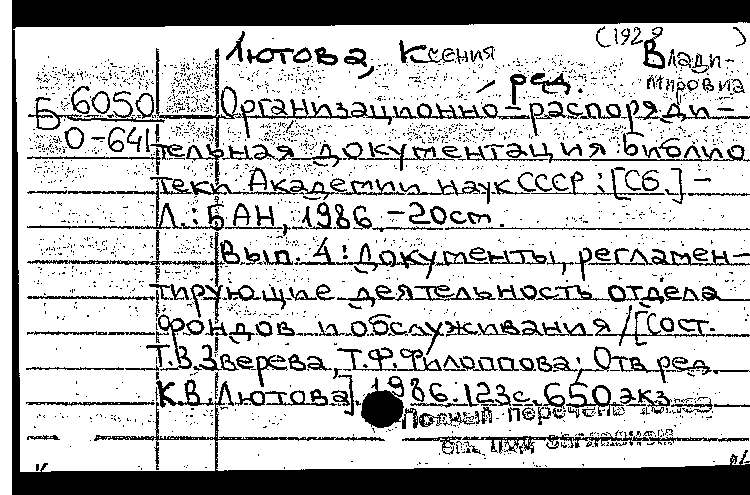 (1928 )
Лютова, Ксения Влади-
мировна
ред.
Б 6050 Организационно-распоряди-
0-641 тельная документация Библио
теки Академии наук СССР : [Сб.] –
Л. : БАН, 1986. – 20 см.
Вып. 4 : Документы, регламен-
тирующие деятельность отдела
фондов и обслуживания / [Сост.
Т.В. Зверева, Т.Ф. Филоппова; Отв. ред.
К.В. Лютова]. 1986. 123 с. 650 экз
Полный перечень томов
см. под заглавием